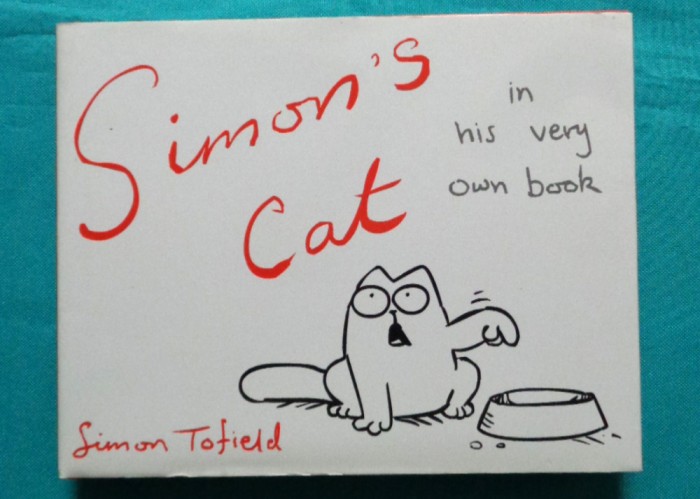 Simon's
Cat
in
his very
own book
Simon Tofield